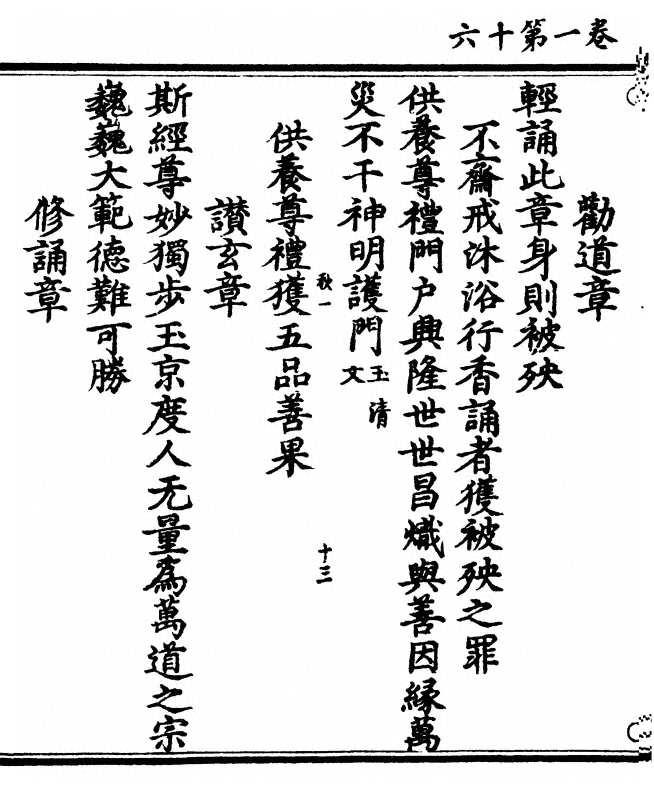 卷一第十六
勸道章
輕誦此章身則被殃
不齋戒沐浴行香誦者獲被殃之罪
供養尊禮門户興隆世世昌熾與善因緣萬
災不干神明護門玉清文
秋一
十三
供養尊禮獲五品善果
讃玄章
斯經尊妙獨步玉京度人无量為萬道之宗
巍巍大範德難可勝
修誦章